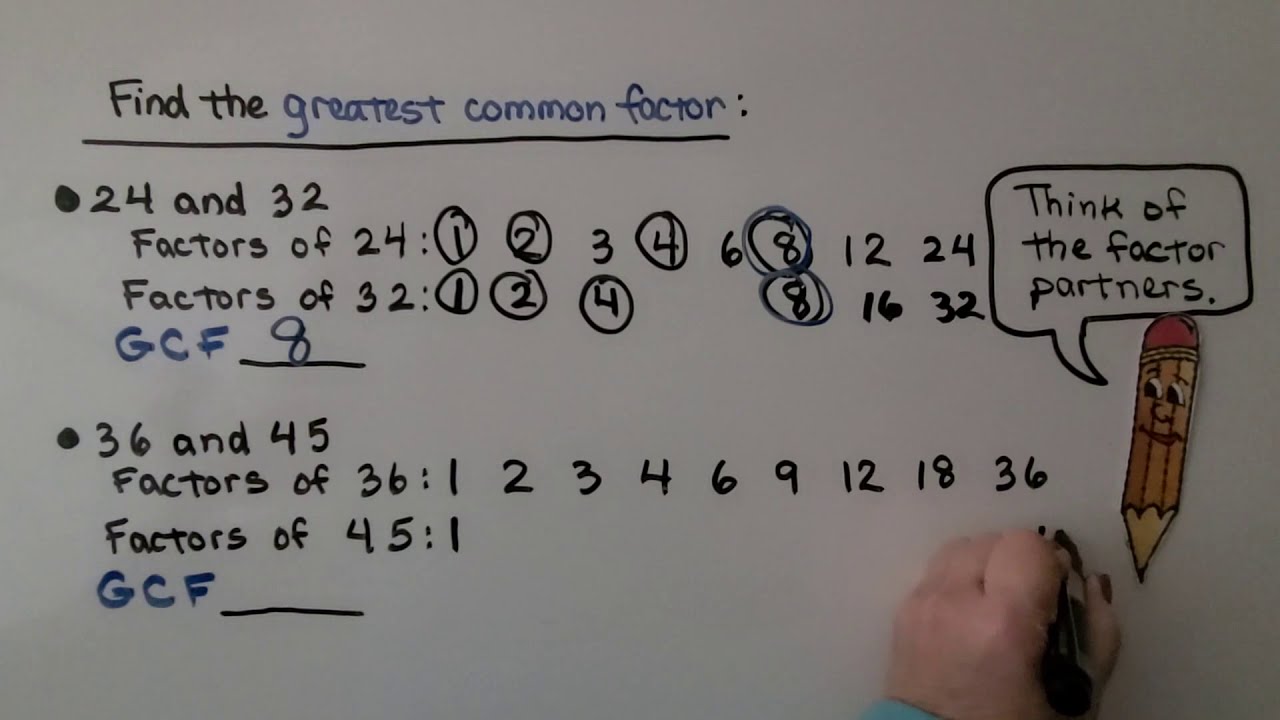 Find the greatest common factor:
• 24 and 32
Factors of 24: 1 2 3 4 6 8 12 24
Factors of 32: 1 2 4 8 16 32
GCF 8
Think of
the factor
partners.
• 36 and 45
Factors of 36: 1 2 3 4 6 9 12 18 36
Factors of 45: 1
GCF